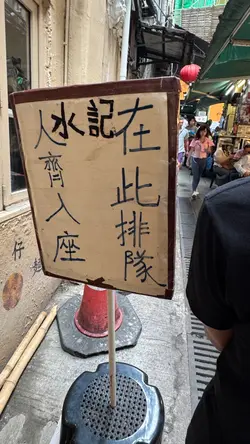 水記
在此排隊
人齊入座
仔